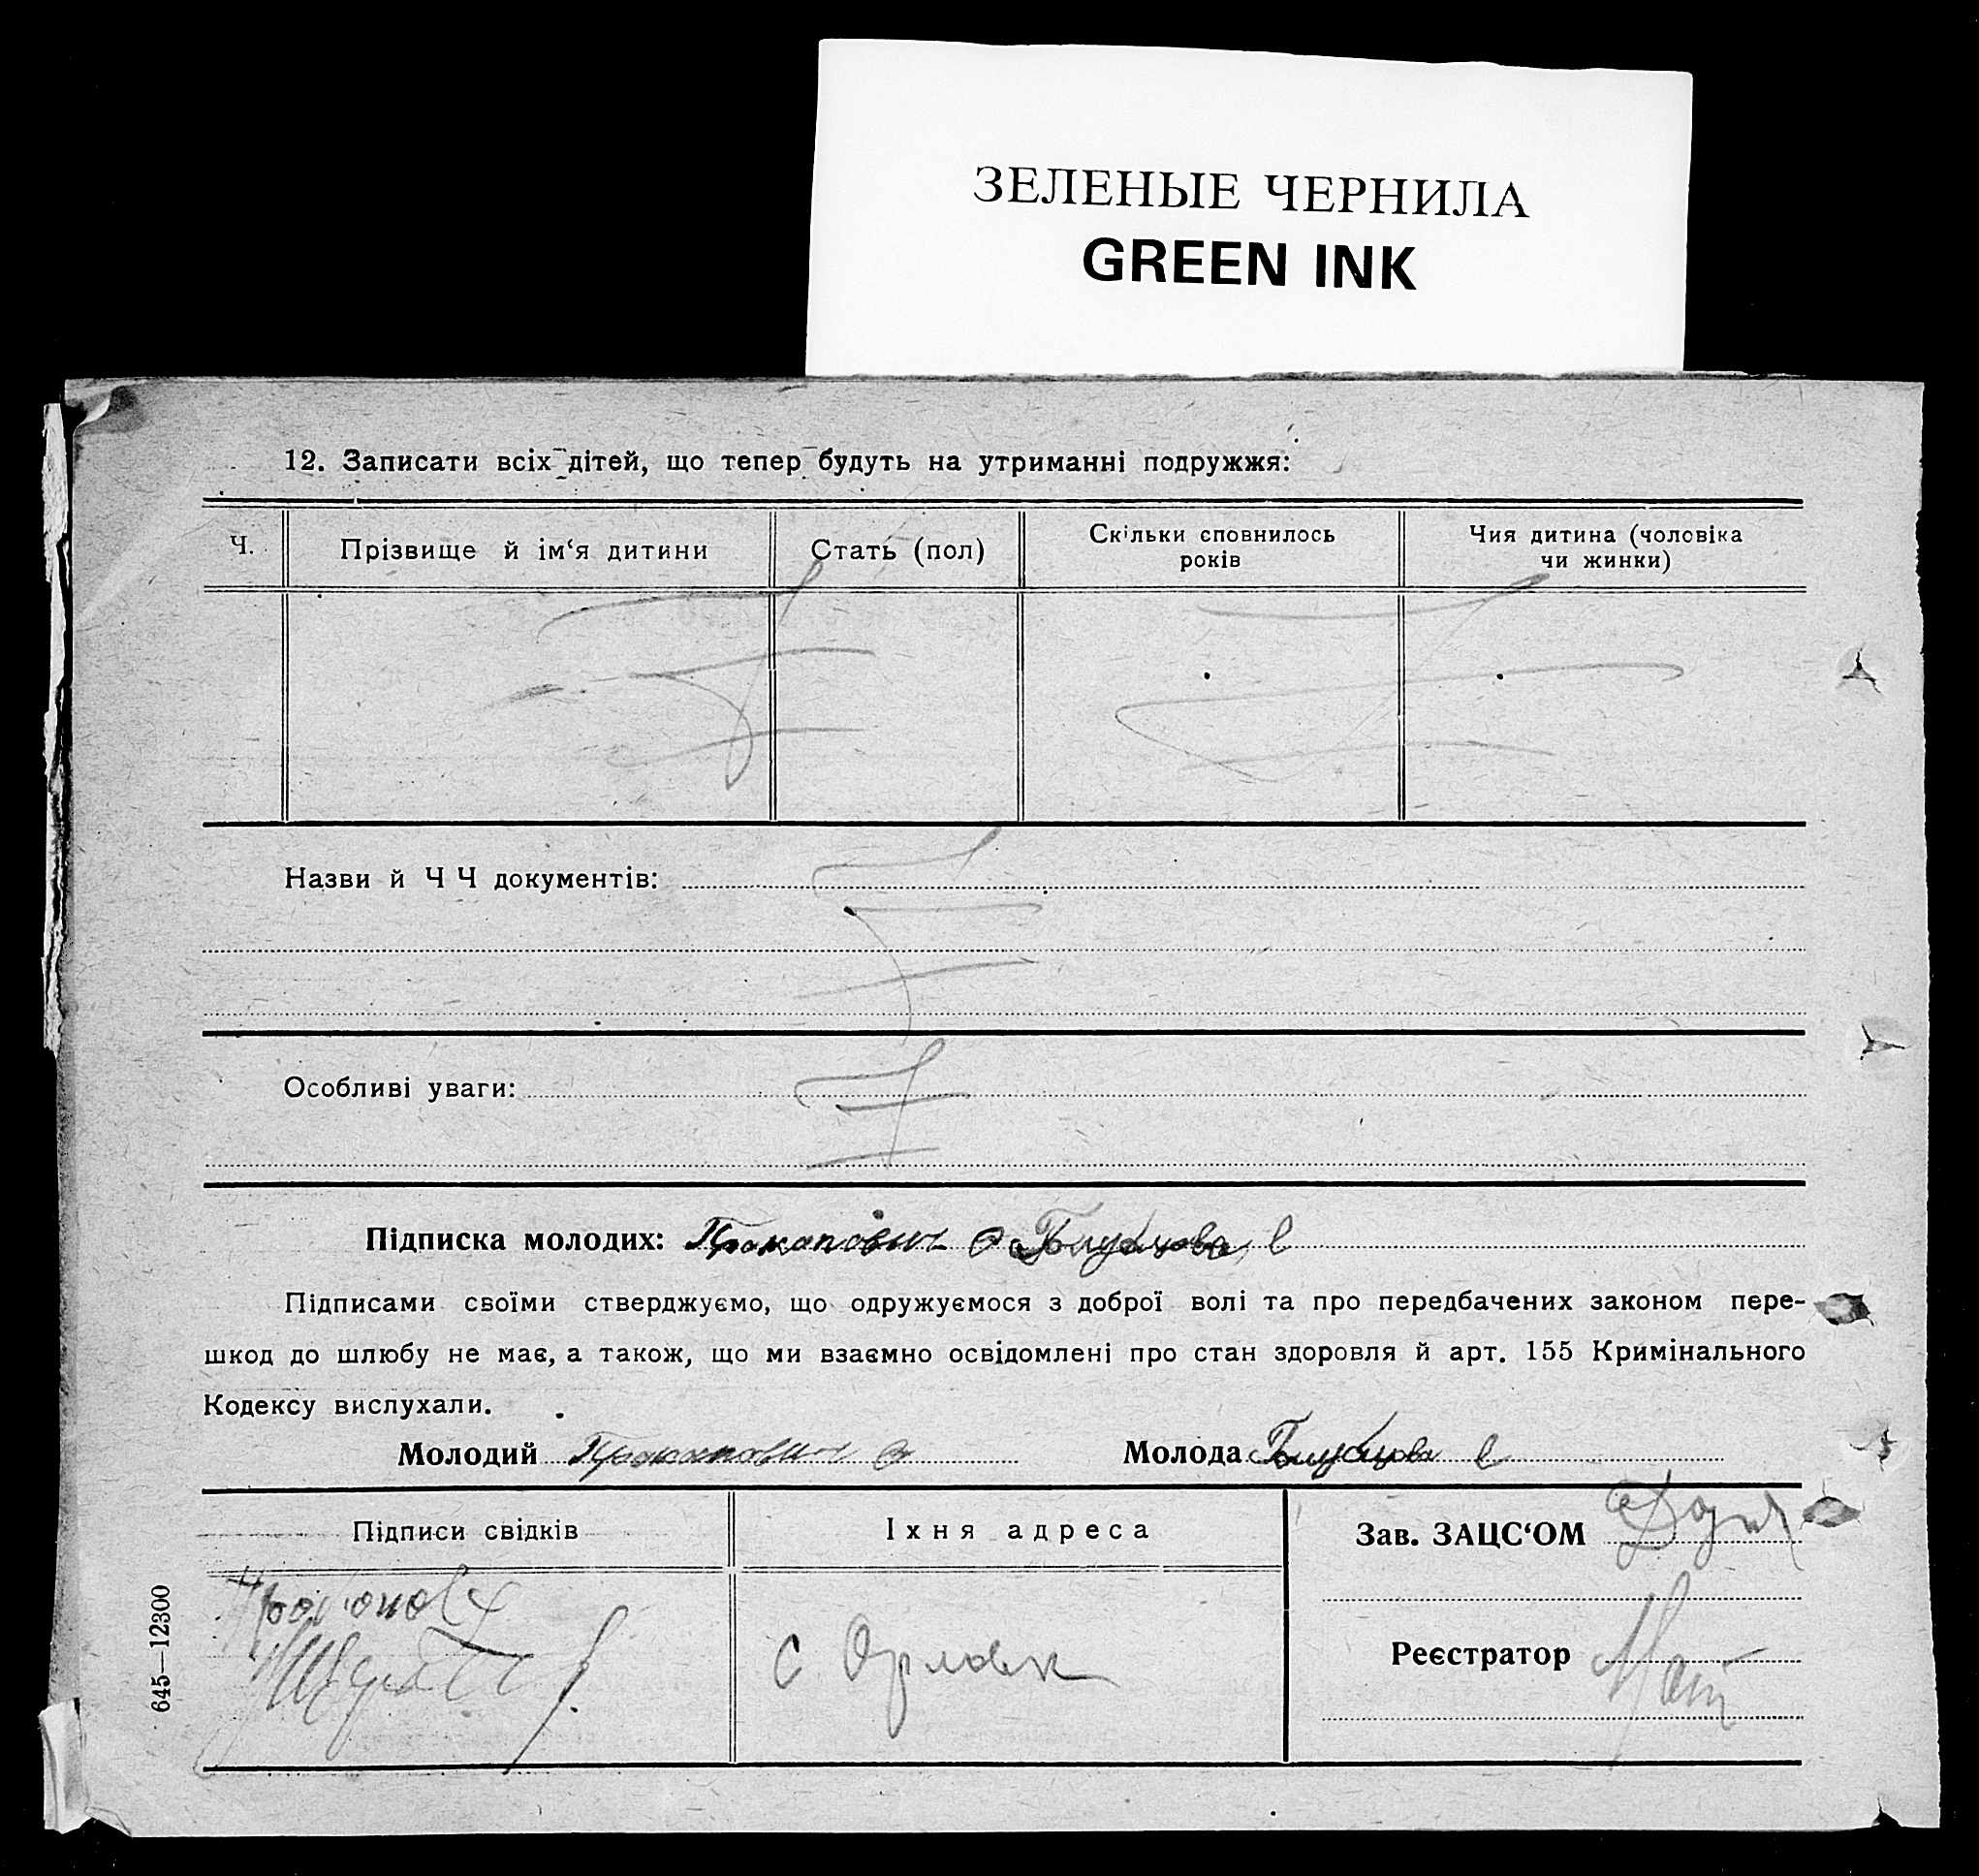 ЗЕЛЕНЫЕ ЧЕРНИЛА
GREEN INK
12. Записати всіх дітей, що тепер будуть на утриманні подружжя:
Ч. Прізвище й ім‘я дитини Стать (пол) Скільки сповнилось років Чия дитина (чоловіка чи жинки)
Назви й Ч Ч документів:
Особливі уваги:
Підписка молодих: Прокапович
Підписами своїми стверджуємо, що одружуємося з доброї волі та про передбачених законом пере-
шкод до шлюбу не має, а також, що ми взаємно освідомлені про стан здоровля й арт. 155 Кримінального
Кодексу вислухали.
Молодий Прокапович Молода
Підписи свідків Іхня адреса Зав. ЗАЦС‘ОМ
с Орловк
Реєстратор
645—12300